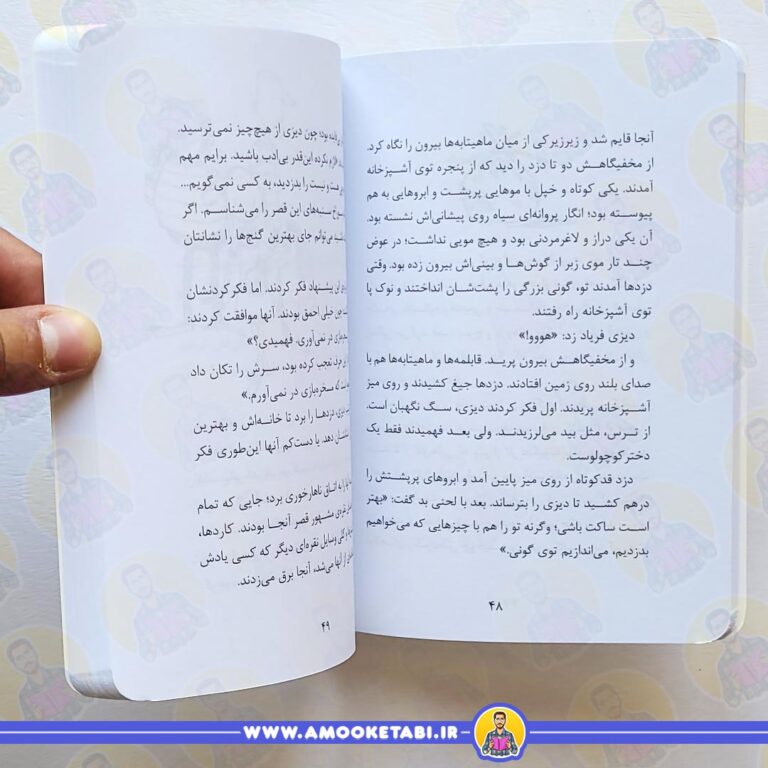 آنجا قایم شد و زیرزیرکی از میان ماهیتابه‌ها بیرون را نگاه کرد.
از مخفیگاهش دو تا دزد را دید که از پنجره توی آشپزخانه
آمدند. یکی کوتاه و خپل با موهایی پرپشت و ابروهایی به هم
پیوسته بود؛ انگار پروانه‌ای سیاه روی پیشانی‌اش نشسته بود.
آن یکی دراز و لاغرمردنی بود و هیچ مویی نداشت؛ در عوض
چند تار موی زبر از گوش‌ها و بینی‌اش بیرون زده بود. وقتی
دزدها آمدند تو، گونی بزرگی را پشت‌شان انداختند و نوک پا
توی آشپزخانه راه رفتند.
دیزی فریاد زد: «هووو!»
و از مخفیگاهش بیرون پرید. قابلمه‌ها و ماهیتابه‌ها هم با
صدای بلند روی زمین افتادند. دزدها جیغ کشیدند و روی میز
آشپزخانه پریدند. اول فکر کردند دیزی، سگ نگهبان است.
از ترس، مثل بید می‌لرزیدند. ولی بعد فهمیدند فقط یک
دخترکوچولوست.
دزد قدکوتاه از روی میز پایین آمد و ابروهای پرپشتش را
درهم کشید تا دیزی را بترساند. بعد با لحنی بد گفت: «بهتر
است ساکت باشی؛ وگرنه تو را هم با چیزهایی که می‌خواهیم
بدزدیم، می‌اندازیم توی گونی.»
۴۸
بود؛ چون دیزی از هیچ‌چیز نمی‌ترسید.
نکرده این‌قدر بی‌ادب باشید. برایم مهم
نیست را بدزدید، به کسی نمی‌گویم...
سنبه‌های این قصر را می‌شناسم. اگر
می‌توانم جای بهترین گنج‌ها را نشانتان
پیشنهاد فکر کردند. اما فکر کردنشان
خیلی احمق بودند. آنها موافقت کردند:
در نمی‌آوری. فهمیدی؟»
تعجب کرده بود، سرش را تکان داد
که مسخره‌بازی در نمی‌آورم.»
دزدها را برد تا خانه‌اش و بهترین
نشان دهد. یا دست‌کم آنها این‌طوری فکر
به اتاق ناهارخوری برد؛ جایی که تمام
مشهور قصر آنجا بودند. کاردها،
وسایل نقره‌ای دیگر که کسی یادش
از آنها می‌شد، آنجا برق می‌زدند.
۴۹
WWW.AMOOKETABI.IR